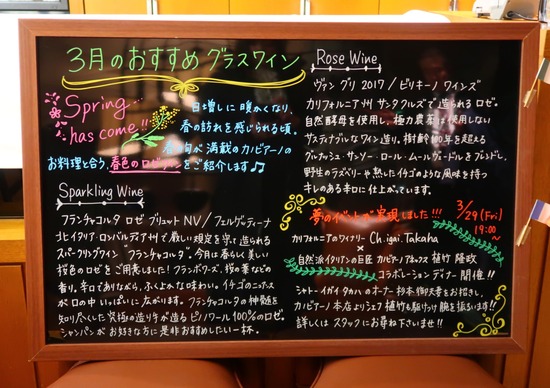 3月のおすすめ グラスワイン
Spring...
has come!!
日増しに 暖かくなり、
春の訪れを感じられる頃。
春の旬が 満載のカノビアーノの
お料理と合う、春色のロゼワインをご紹介します♪
Sparkling Wine
フランチャコルタ ロゼ ブリュット NV / フェルゲッティーナ
北イタリア・ロンバルディア州で 厳しい規定を守って造られる
スパークリングワイン "フランチャコルタ"。今月は春らしく美しい
桜色のロゼをご用意しました! フランボワーズ、桜の葉などの
香り。辛口でありながら、ふくよかな味わい。イチゴのニュアンス
が口の中いっぱいに広がります。フランチャコルタの神髄を
知り尽くした 究極の造り手が造る ピノノワール100%のロゼ。
シャンパンが お好きな方に是非おすすめしたい一杯。
Rose Wine
ヴァン グリ 2017 / ビリキーノ ワインズ
カリフォルニア州 サンタクルズで 造られるロゼ。
自然酵母を使用し、極力農薬は使用しない
サスティナブルなワイン造り。樹齢100年を超える
グルナッシュ・サンソー・ロール・ムールヴードルをブレンドし、
野生のラズベリーや熟したイチゴのような風味を持つ
キレのある辛口に仕上がています。
夢のイベントが実現しました!!!
3/29(Fri)
19:00~
カリフォルニアのワイナリー Ch.igai.Takaha
×
自然派イタリアンの巨匠 カノビアーノアネックス 植竹 隆政
コラボレーション ディナー 開催!!
シャトー・イガイタカハ のオーナー 杉本御夫妻をお招きし、
カノビアーノ 本店よりシェフ 植竹も駆けつけ 腕を振るいます!!
詳しくは スタッフにお尋ね下さいませ!!